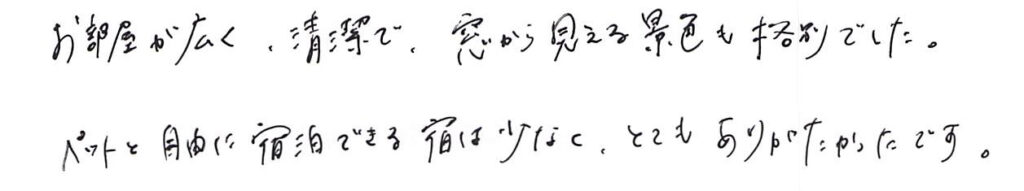 お部屋が広く、清潔で、窓から見える景色も格別でした。
ペットと自由に宿泊できる宿は少なく、とてもありがたかったです。